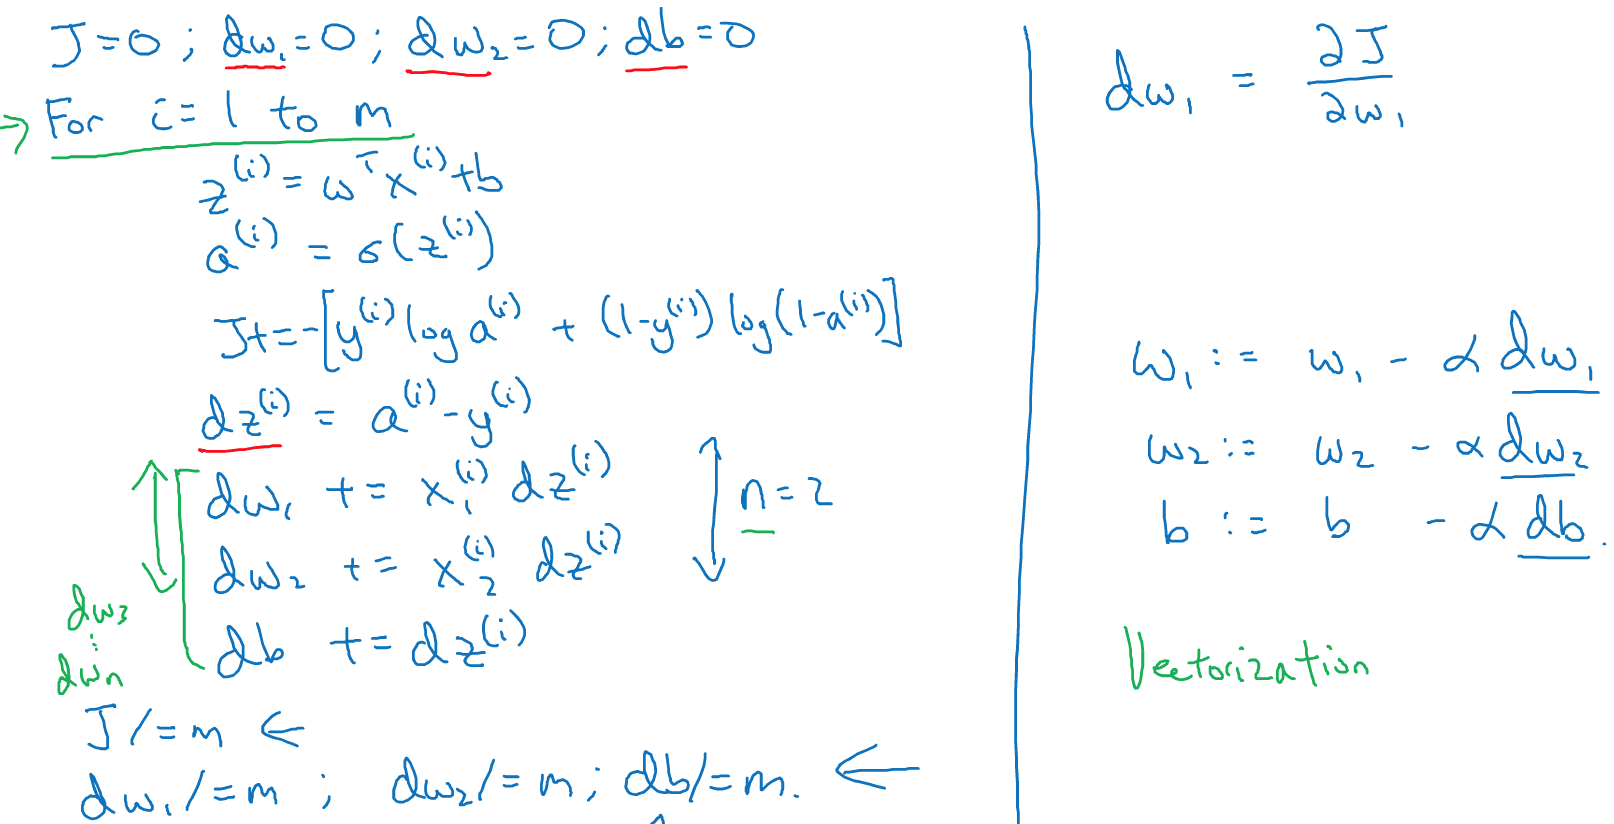 J=0; dw₁=0; dw₂=0; db=0
For i=1 to m
z⁽ⁱ⁾ = wᵀx⁽ⁱ⁾+b
a⁽ⁱ⁾ = σ(z⁽ⁱ⁾)
J+=-[y⁽ⁱ⁾ log a⁽ⁱ⁾ + (1-y⁽ⁱ⁾) log(1-a⁽ⁱ⁾)]
dz⁽ⁱ⁾ = a⁽ⁱ⁾-y⁽ⁱ⁾
dw₁ += x₁⁽ⁱ⁾ dz⁽ⁱ⁾
dw₂ += x₂⁽ⁱ⁾ dz⁽ⁱ⁾
n=2
db += dz⁽ⁱ⁾
dw₃
⋮
dwₙ
J/=m ←
dw₁/=m; dw₂/=m; db/=m. ←
dw₁ = ∂J/∂w₁
w₁ := w₁ - α dw₁
w₂ := w₂ - α dw₂
b := b - α db.
Vectorization